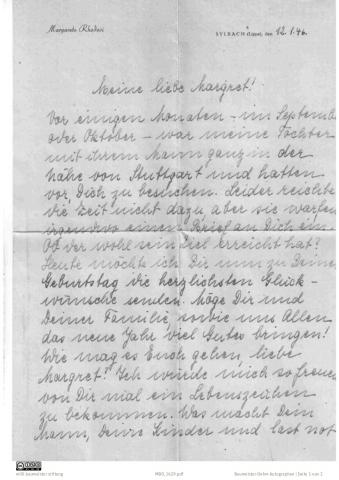 Margarete Rhodovi
SYLBACH (Lippe), den 12.1.46.
Meine liebe Margret!
Vor einigen Monaten – im September
oder Oktober – war meine Tochter
mit ihrem Mann ganz in der
Nähe von Stuttgart und hatten
vor, Dich zu besuchen. Leider reichte
die Zeit nicht dazu, aber sie warfen
irgendwo einen Brief an Dich ein.
Ob der wohl sein Ziel erreicht hat?
Heute möchte ich Dir nun zu Deinem
Geburtstag die herzlichsten Glück-
wünsche senden. Möge Dir und
Deiner Familie, sowie uns Allen
das neue Jahr viel Gutes bringen!
Wie mag es Euch gehen, liebe
Margret? Ich würde mich so freuen
von Dir mal ein Lebenszeichen
zu bekommen. Was macht Dein
Mann, Deine Kinder und last not
willi baumeister stiftung
Baumeister Online Autographen | Seite 1 von 2